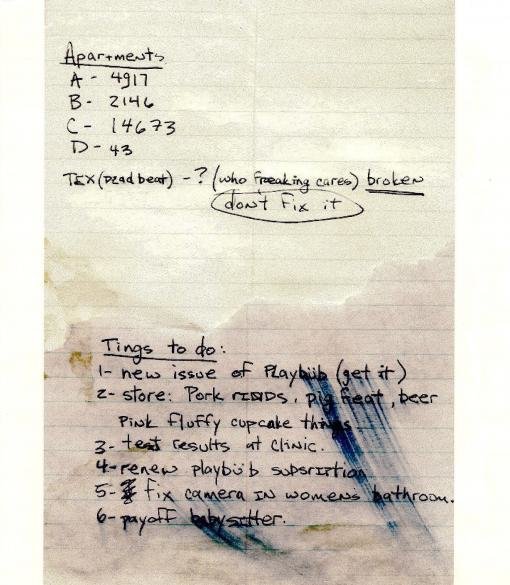 Apartments
A - 4917
B - 2146
C - 14673
D - 43
TEX (Dead beat) - ? (who freaking cares) broken
don't fix it
Tings to do:
1- new issue of Playbüb (get it)
2- store: Pork rinds, pig feat, beer
pink fluffy cupcake things
3- test results at clinic.
4- renew playbüb subsription
5- fix camera in women's bathroom.
6- payoff babysitter.